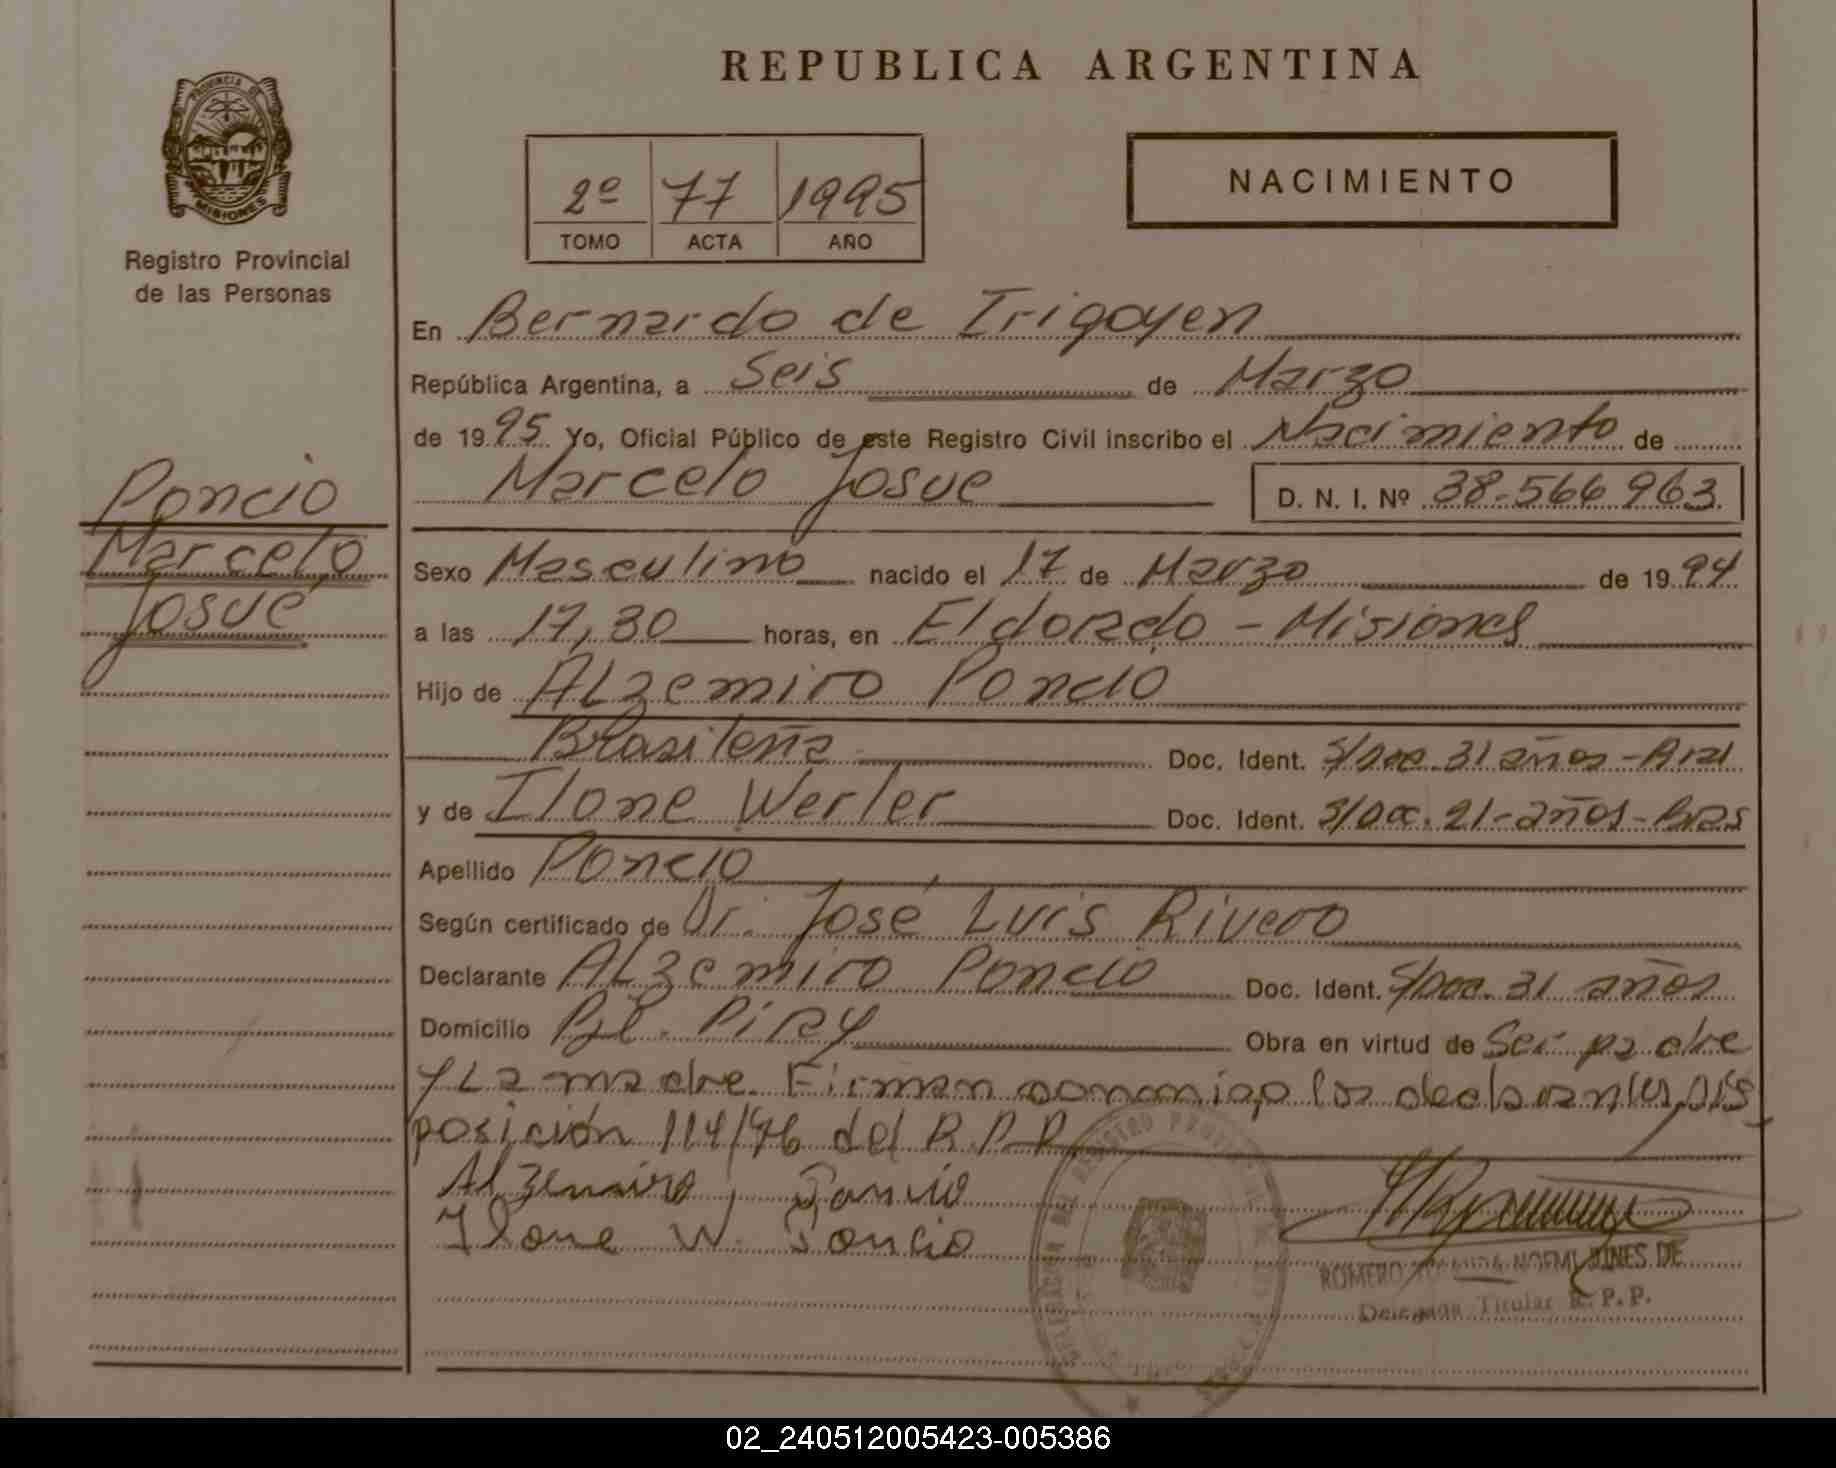 REPUBLICA ARGENTINA
PROVINCIA DE
MISIONES
Registro Provincial
de las Personas
NACIMIENTO
2º 77 1995
TOMO ACTA AÑO
En Bernardo de Irigoyen
República Argentina, a Seis de Marzo
de 1995 Yo, Oficial Público de este Registro Civil inscribo el Nacimiento de
Marcelo Josue D. N. I. Nº 38.566963
Poncio
Marcelo
Josué
Sexo Masculino nacido el 17 de Marzo de 1994
a las 17,30 horas, en Eldorado - Misiones
Hijo de ALzemiro Poncio
Brasileña Doc. Ident. S/Doc. 31 años -
y de Ilone Werler Doc. Ident. S/Doc. 21-años-Bras
Apellido Poncio
Según certificado de Dr. José Luis Rivero
Declarante ALzemiro Poncio Doc. Ident. S/Doc. 31 años
Domicilio Piray Obra en virtud de Ser padre
y La madre. Firman conmigo los declarantes, Dis
posición 114/96 del R.P.P.
Alzemiro Poncio
Ilone W. Poncio
ROMERO NOEMI JINES DE
Delegada Titular R. P. P.
02_240512005423-005386